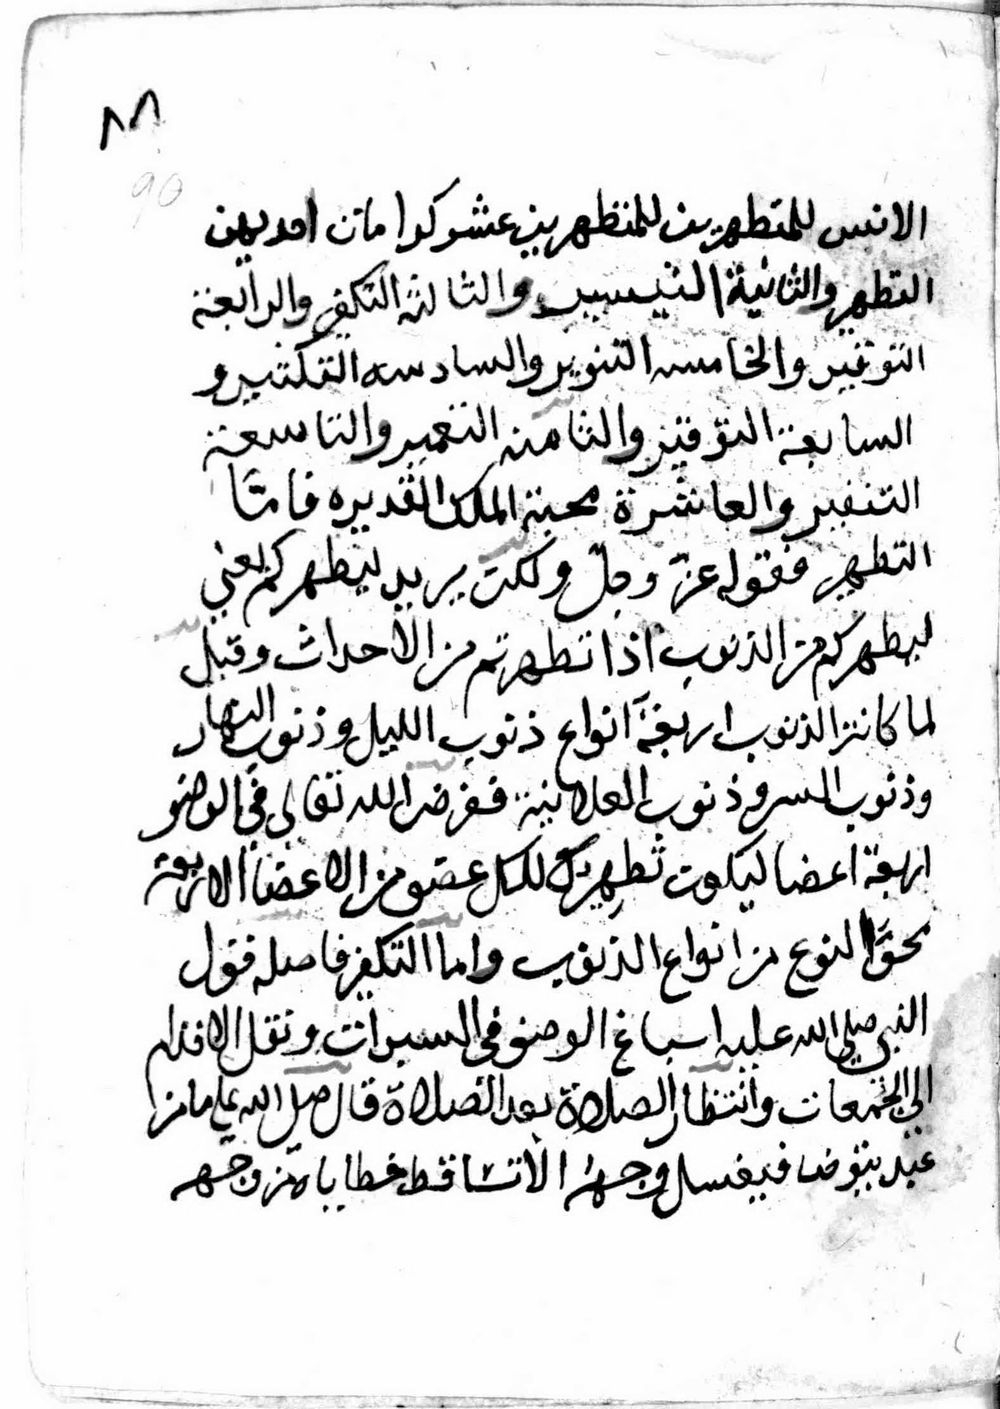 ٨٨
90
الانس للمتطهرين للمتطهرين عشر كرامات احديهن
التطهير والثانية التيسير والثالثة التكفير والرابعة
التوغير والخامسه التنوير والسادسه التكثير و
السابعة التوقير والثامنه التعمير والتاسعة
التنفير والعاشرة محبة الملك القديره فامّا
التطهير فقوله عزّ وجلّ ولكن يريد ليطهركم يعني
ليطهركم من الذنوب اذا تطهرتم من الاحداث وقيل
لما كانت الذنوب اربعة انواع ذنوب الليل وذنوب النهار
وذنوب السر وذنوب العلانية ففرض الله تعالى في الوضو
اربعة اعضا ليكون تطهير كل لكل عضو من الاعضا الاربعة
بحقّ النوع من انواع الذنوب واما التكفير فاصله قول
النبي صلى الله عليه اسباغ الوضو في السبرات ونقل الاقدام
الى الجمعات وانتظار الصلاة بعد الصلاة قال صلى الله علي ما من
عبد يتوضا فيغسل وجهه الا تساقط خطاياه من وجهه